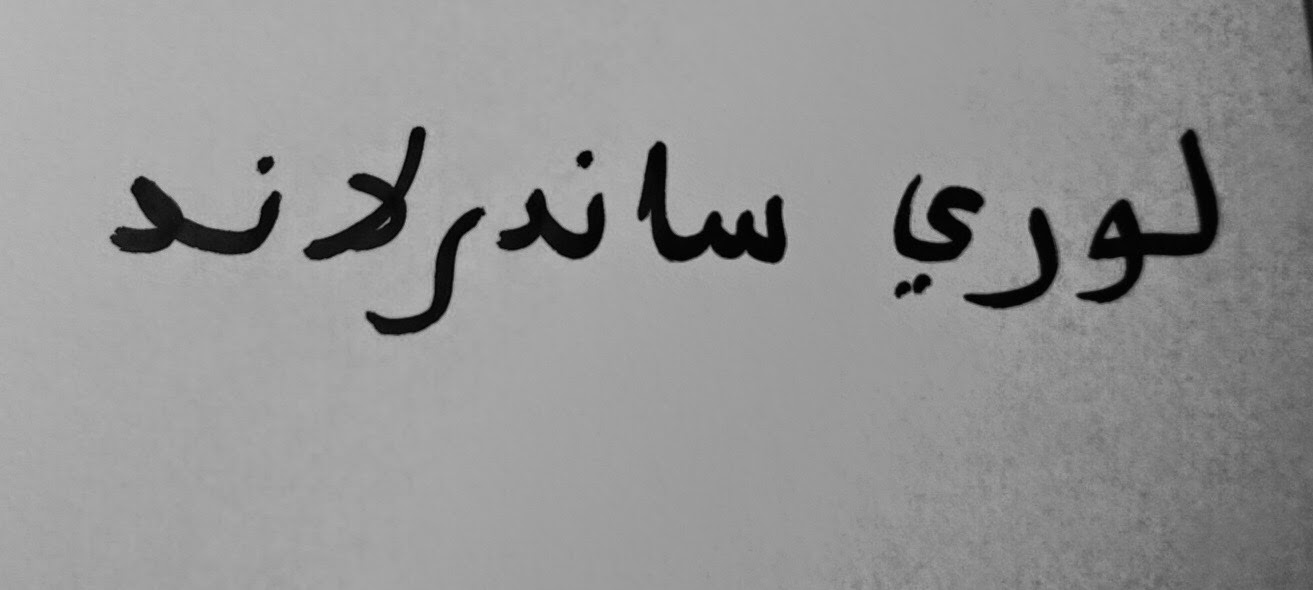 لوري ساندرلاند